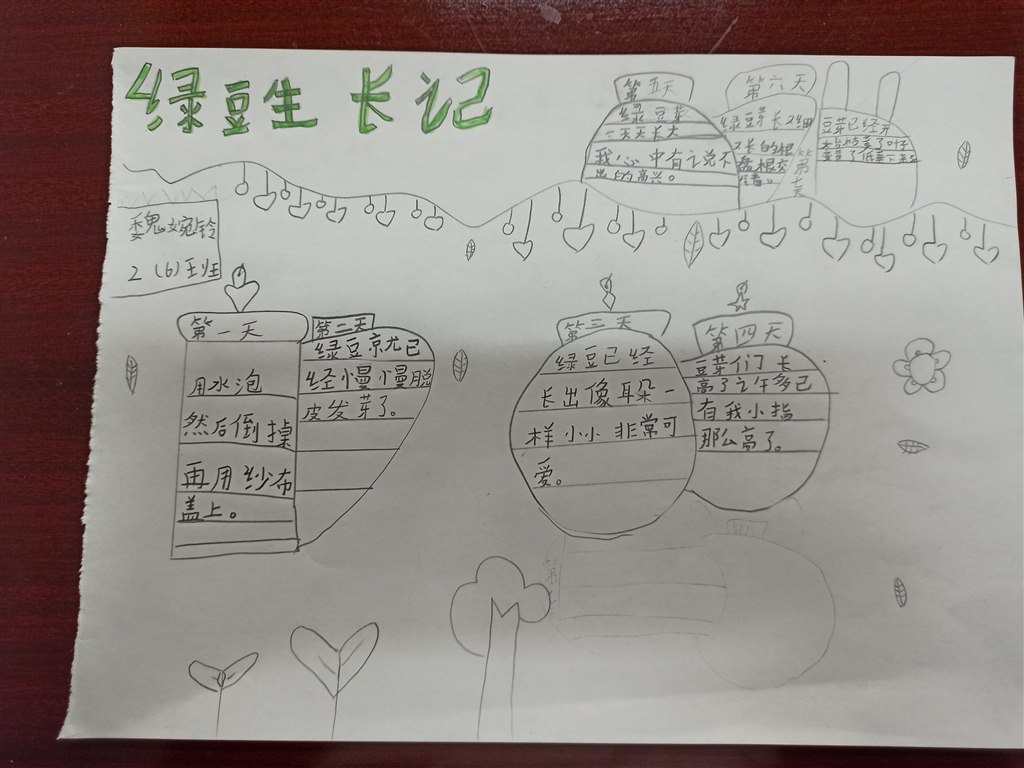 绿豆生长记
魏婉铃
2（6）班
第一天
用水泡
然后倒掉
再用纱布
盖上。
第二天
绿豆京尤已
经慢慢脱
皮发芽了。
第三天
绿豆已经
长出像耳朵一
样小小非常可
爱。
第四天
豆芽们长
高了
多已
有我小指
那么高了。
第五天
绿豆芽
一天天长大
我心中有之说不
出的高兴。
第六天
绿豆芽长
长的根
盘根交
第七天
豆芽已经开